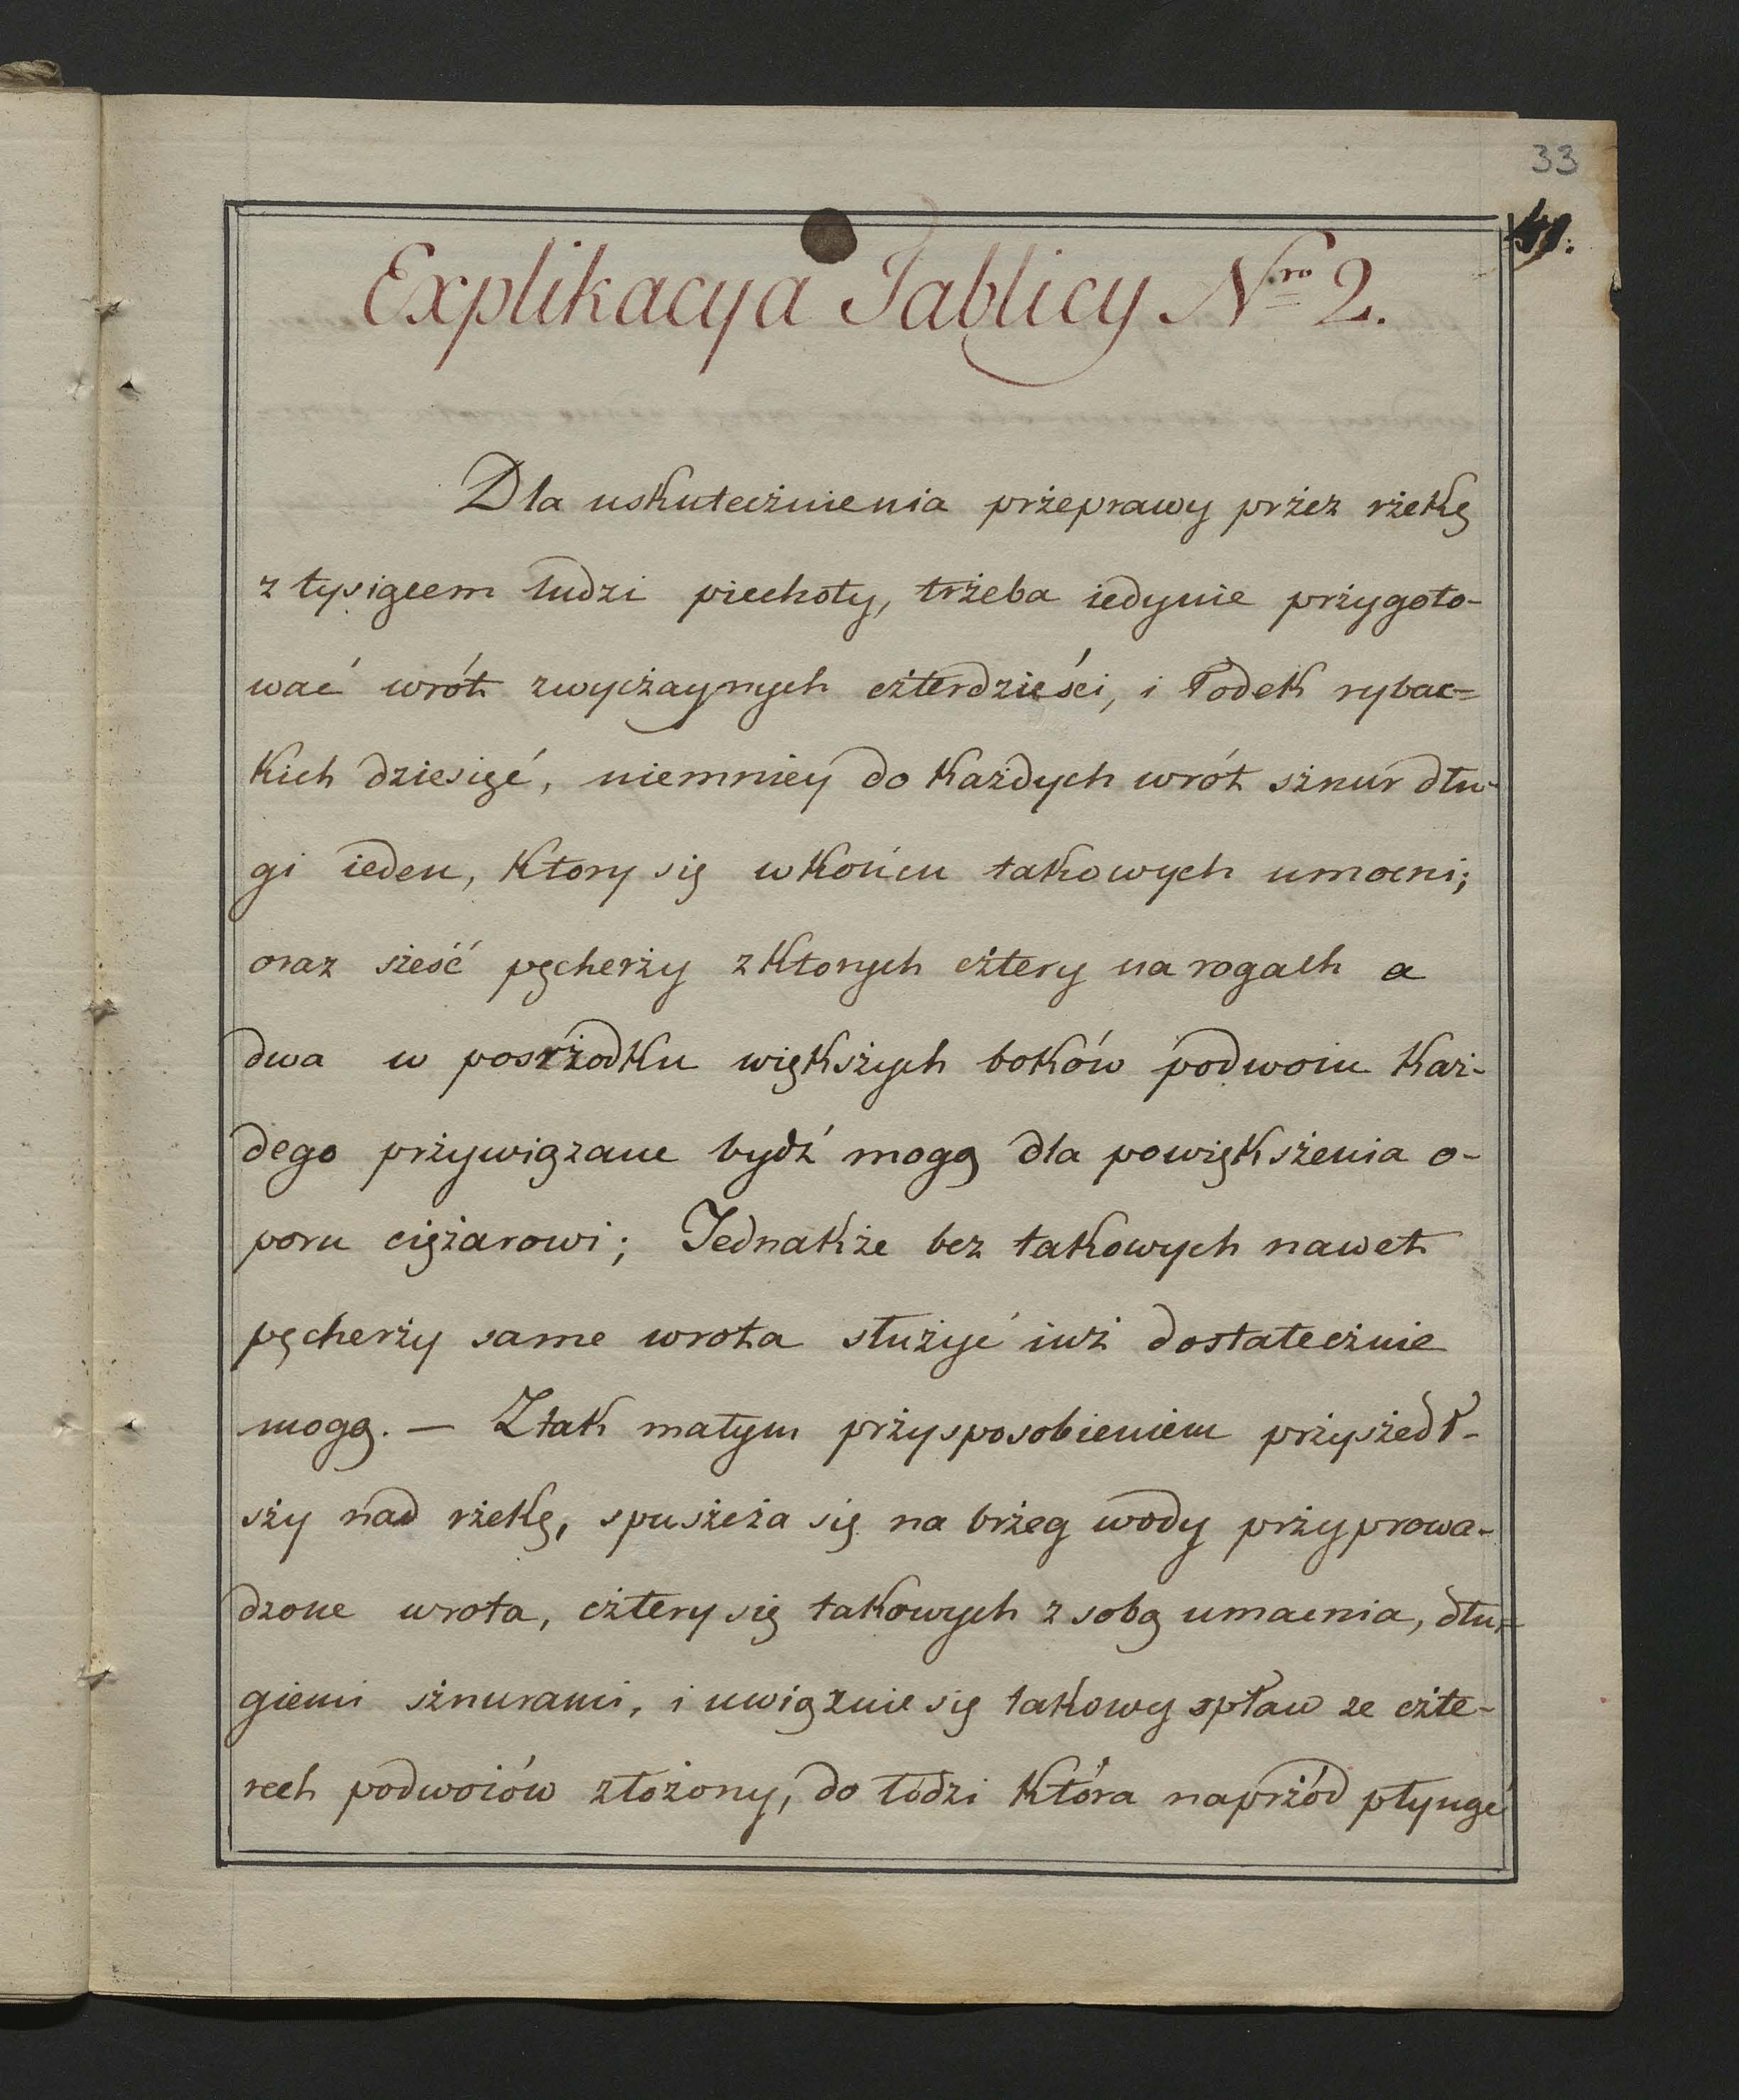 33
Explikacyia Tablicy N<sup>ro</sup> 2.
Dla uskutecżnienia przżeprawy przżez rżekę
z tysiącem ludzi piechoty, trżeba iedynie prżygoto-
wać wrót zwycżaynych cżterdzieści, i łodek rybac=
kich dziesięć, niemniey do każdych wrót sżnur dłu-
gi ieden, ktory się wkońcu takowych umocni;
oraz sżeść pęcherży zktorych cżtery na rogach a
dwa w posrżodku więksżych boków podwoiu każ-
dego prżywiązane bydź mogą dla powięksżenia o-
poru ciężarowi; Jednakże bez takowych nawet
pęcherży same wrota służyć iuż dostatecżnie
mogą. — Ztak małym prżysposobieniem prżysżedł-
sży nad rżekę, spusżcża się na brżeg wody prżyprowa-
dzone wrota, cżtery się takowych z sobą umacnia, dłu-
giemi sżnurami, i uwiąznie się takowy spław ze cżte-
rech podwoiów złożony, do łodzi która naprżód płynąć